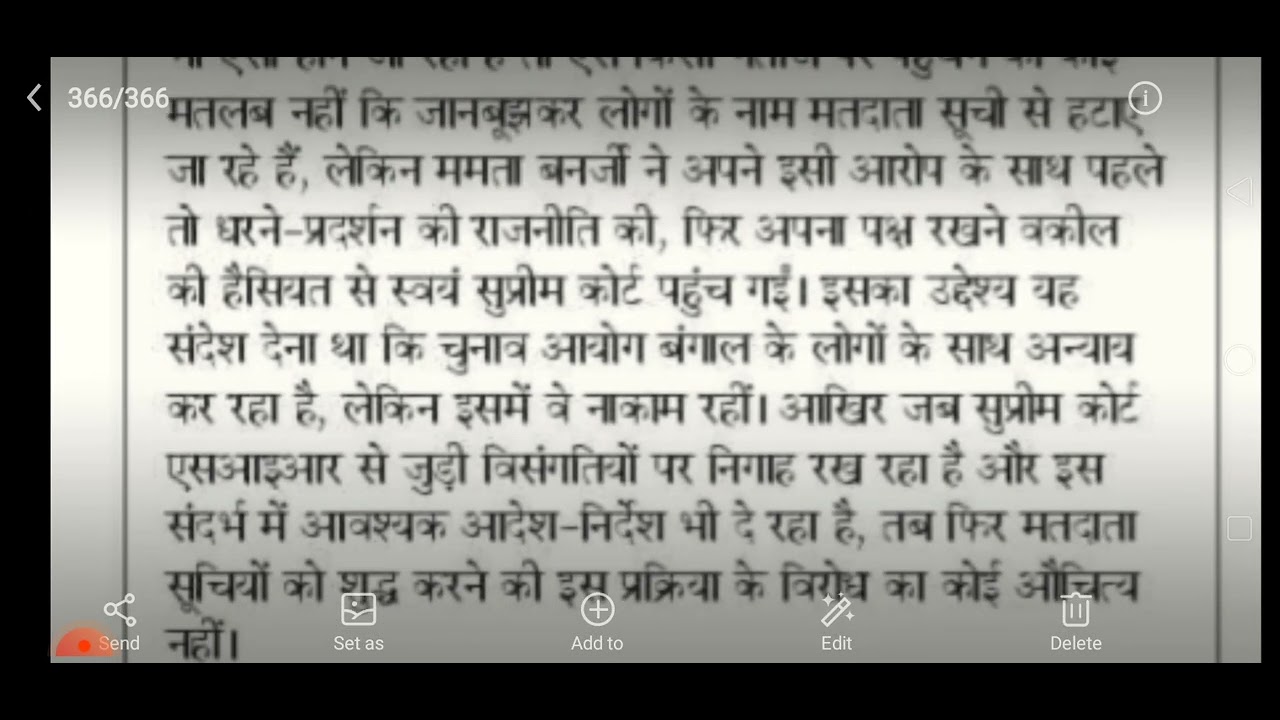 366/366
मतलब नहीं कि जानबूझकर लोगों के नाम मतदाता सूची से हटाए
जा रहे हैं, लेकिन ममता बनर्जी ने अपने इसी आरोप के साथ पहले
तो धरने-प्रदर्शन की राजनीति की, फिर अपना पक्ष रखने वकील
की हैसियत से स्वयं सुप्रीम कोर्ट पहुंच गईं। इसका उद्देश्य यह
संदेश देना था कि चुनाव आयोग बंगाल के लोगों के साथ अन्याय
कर रहा है, लेकिन इसमें वे नाकाम रहीं। आखिर जब सुप्रीम कोर्ट
एसआइआर से जुड़ी विसंगतियों पर निगाह रख रहा है और इस
संदर्भ में आवश्यक आदेश-निर्देश भी दे रहा है, तब फिर मतदाता
सूचियों को शुद्ध करने की इस प्रक्रिया के विरोध का कोई औचित्य
नहीं।
Send Set as Add to Edit Delete